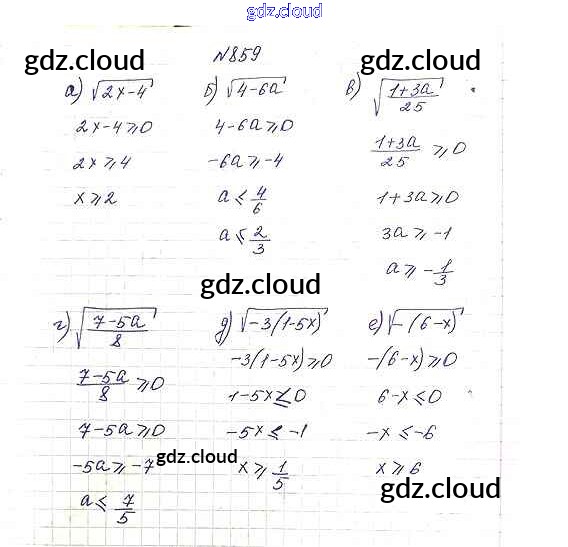 gdz.cloud
№859
gdz.cloud gdz.cloud
а) √(2x-4)
2x-4⩾0
2x⩾4
x⩾2
б) √(4-6a)
4-6a⩾0
-6a⩾-4
a⩽4/6
a⩽2/3
в) √((1+3a)/25)
(1+3a)/25 ⩾0
1+3a⩾0
3a⩾-1
a⩾-1/3
gdz.cloud
г) √((7-5a)/8)
(7-5a)/8 ⩾0
7-5a⩾0
-5a⩾-7
a⩽7/5
д) √(-3(1-5x))
-3(1-5x)⩾0
1-5x⩽0
-5x⩽-1
x⩾1/5
е) √(-(6-x))
-(6-x)⩾0
6-x⩽0
-x⩽-6
x⩾6
gdz.cloud
gdz.cloud